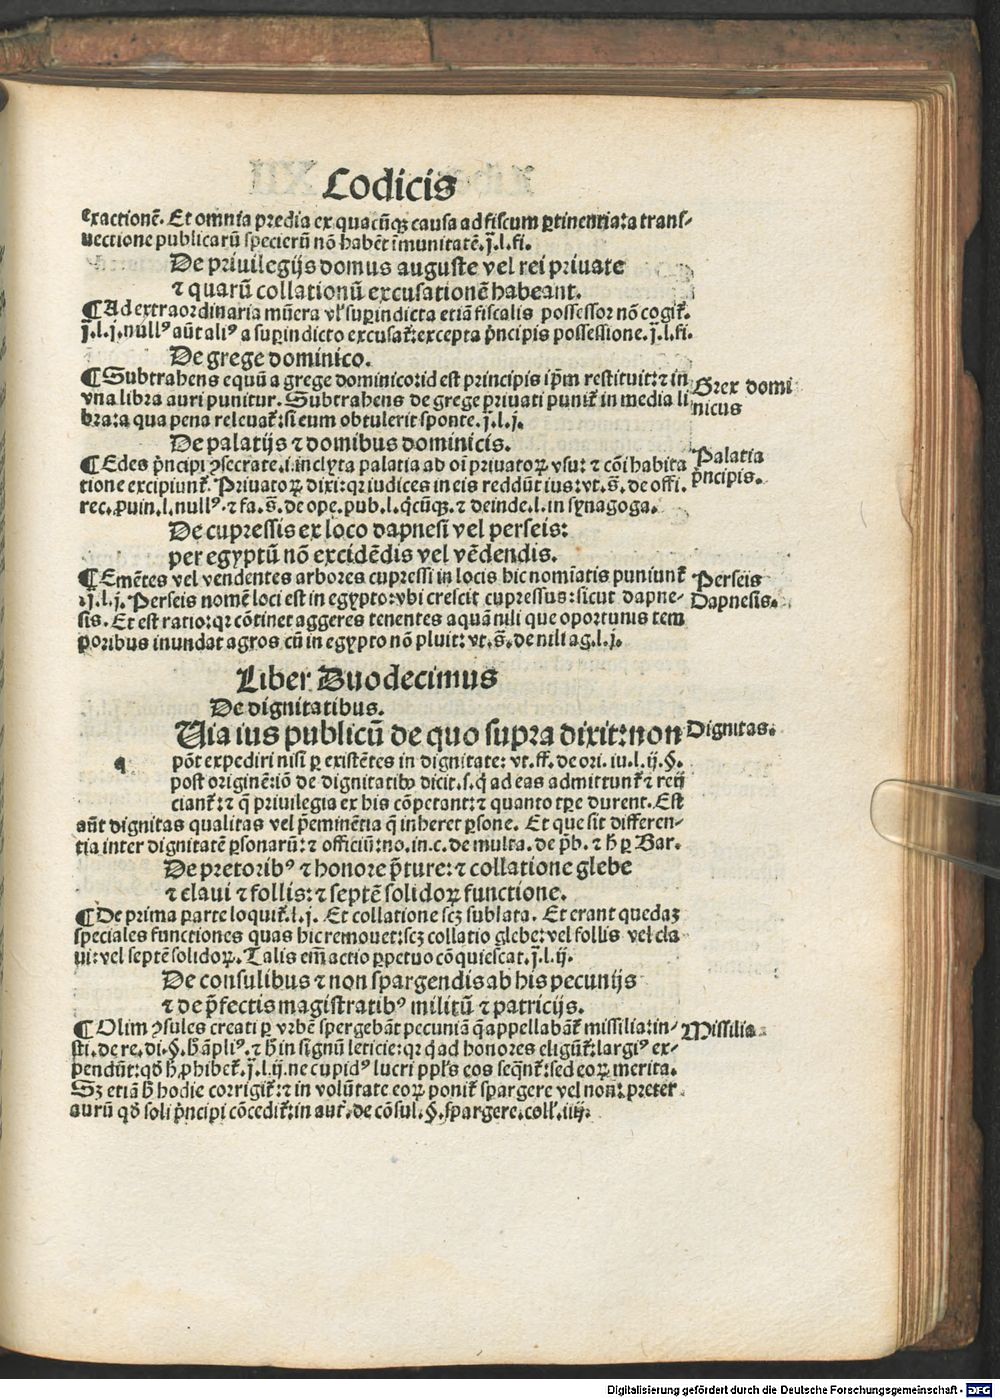 Codicis
exactionē. Et omnia predia ex quacūqꝫ causa ad fiscum ꝑtinentia: a trans⸗
uectione publicarū specierū nō habēt īmunitatē. j. l. fi.
De priuilegijs domus auguste vel rei priuate
⁊ quarū collationū excusationē habeant.
¶ Ad extraordinaria mūera vl' suꝑindicta etiā fiscalis possessor nō cogit᷑.
j. l. j. nullꝰ aūt aliꝰ a suꝑindicto excusat᷑: excepta p̄ncipis possessione. j. l. fi.
De grege dominico.
¶ Subtrahens equū a grege dominico: id est principis ip̄m restituit: ⁊ in
vna libra auri punitur. Subtrahens de grege priuati punit᷑ in media li
bra: a qua pena releuat᷑: si eum obtulerit sponte. j. l. j.
Grex domi
nicus
De palatijs ⁊ domibus dominicis.
¶ Edes p̄ncipi ꝯsecrate. i. inclyta palatia ad oī priuatoꝝ vsu: ⁊ cōi habita
tione excipiunt᷑. Priuatoꝝ dixi: qr iudices in eis reddūt ius: vt. s̄. de offi.
rec. ꝓuin. l. nullꝰ. ⁊ fa. s̄. de ope. pub. l. q̇cūqꝫ. ⁊ deinde. l. in synagoga.
Palatia
p̄ncipis.
De cupressis ex loco dapnesī vel perseis:
per egyptū nō excidēdis vel vēdendis.
¶ Emētes vel vendentes arbores cupressi in locis hic nomīatis puniunt᷑
.j. l. j. Perseis nomē loci est in egypto: vbi crescit cupressus: sicut dapne⸗
sis. Et est ratio: qr cōtinet aggeres tenentes aquā nili que oportunis tem
poribus inundat agros cū in egypto nō pluit: vt. s̄. de nili ag. l. j.
Perseis
Dapnesis.
Liber Duodecimus
De dignitatibus.
Uia ius publicū de quo supra dixit: non
q
pōt expediri nisi ꝑ existētes in dignitate: vt. ff. de ori. iu. l. ij. §.
post originē: iō de dignitatibꝰ dicit. s. q̇ ad eas admittunt᷑ ⁊ reij
ciant᷑: ⁊ q̄ priuilegia ex his cōpetant: ⁊ quanto tꝑe durent. Est
aūt dignitas qualitas vel p̄eminētia q̄ inheret ꝑsone. Et que sit differen⸗
tia inter dignitatē ꝑsonarū: ⁊ officiū: no. in. c. de multa. de p̄b. ⁊ h̄ ꝑ Bar.
Dignitas.
De pretoribꝰ ⁊ honore p̄ture: ⁊ collatione glebe
⁊ claui ⁊ follis: ⁊ septē solidoꝝ functione.
¶ De prima parte loquit᷑. l. j. Et collatione scꝫ sublata. Et erant quedaꝫ
speciales functiones quas hic remouet: scꝫ collatio glebe: vel follis vel cla
ui: vel septē solidoꝝ. Talis em̄ actio ꝑpetuo cōquiescat. j. l. ij.
De consulibus ⁊ non spargendis ab his pecunijs
⁊ de p̄fectis magistratibꝰ militū ⁊ patricijs.
¶ Olim ꝯsules creati ꝑ vrbē spergebāt pecuniā q̄ appellabāt᷑ missilia: in⸗
sti. de re. di. §. h̄ ampliꝰ. ⁊ h̄ in signū leticie: qr q̇ ad honores eligūt᷑: largiꝰ ex⸗
pendūt: qd̄ h̄ ꝓhibet᷑. j. l. ij. ne cupidꝰ lucri ppl's eos seq̄nt᷑: sed eoꝝ merita.
Sꝫ etiā h̄ hodie corrigit᷑: ⁊ in volūtate eoꝝ ponit᷑ spargere vel non: preter
aurū qd̄ soli p̄ncipi cōcedit᷑: in aut᷑. de cōsul. §. spargere. coll'. iiij.
Missilia
Digitalisierung gefördert durch die Deutsche Forschungsgemeinschaft - DFG